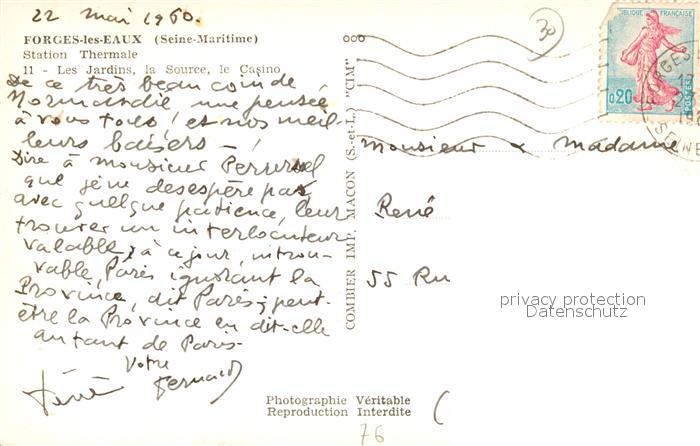 22 mai 1960.
FORGES-les-EAUX (Seine-Maritime)
Station Thermale
11 - Les Jardins, la Source, le Casino
De ce très beau coin de
Normandie une pensée
à vous tous ! et nos meil
leurs baisers - !
Dire à Monsieur
que je ne desespère pas,
avec quelque patience, leur
trouver un interlocuteur
valable, à ce jour, introu-
vable, Paris ignorant la
Province, dit Paris ; peut-
être la Province en dit-elle
autant de Paris -
Votre
Fernand
Photographie Véritable
Reproduction Interdite
76
COMBIER IMP. MACON (S.-et-L.) "CIM"
30
REPUBLIQUE FRANÇAISE
0,20
POSTES
FORGES
SEINE
Monsieur & Madame
René
55 Ru
privacy protection
Datenschutz